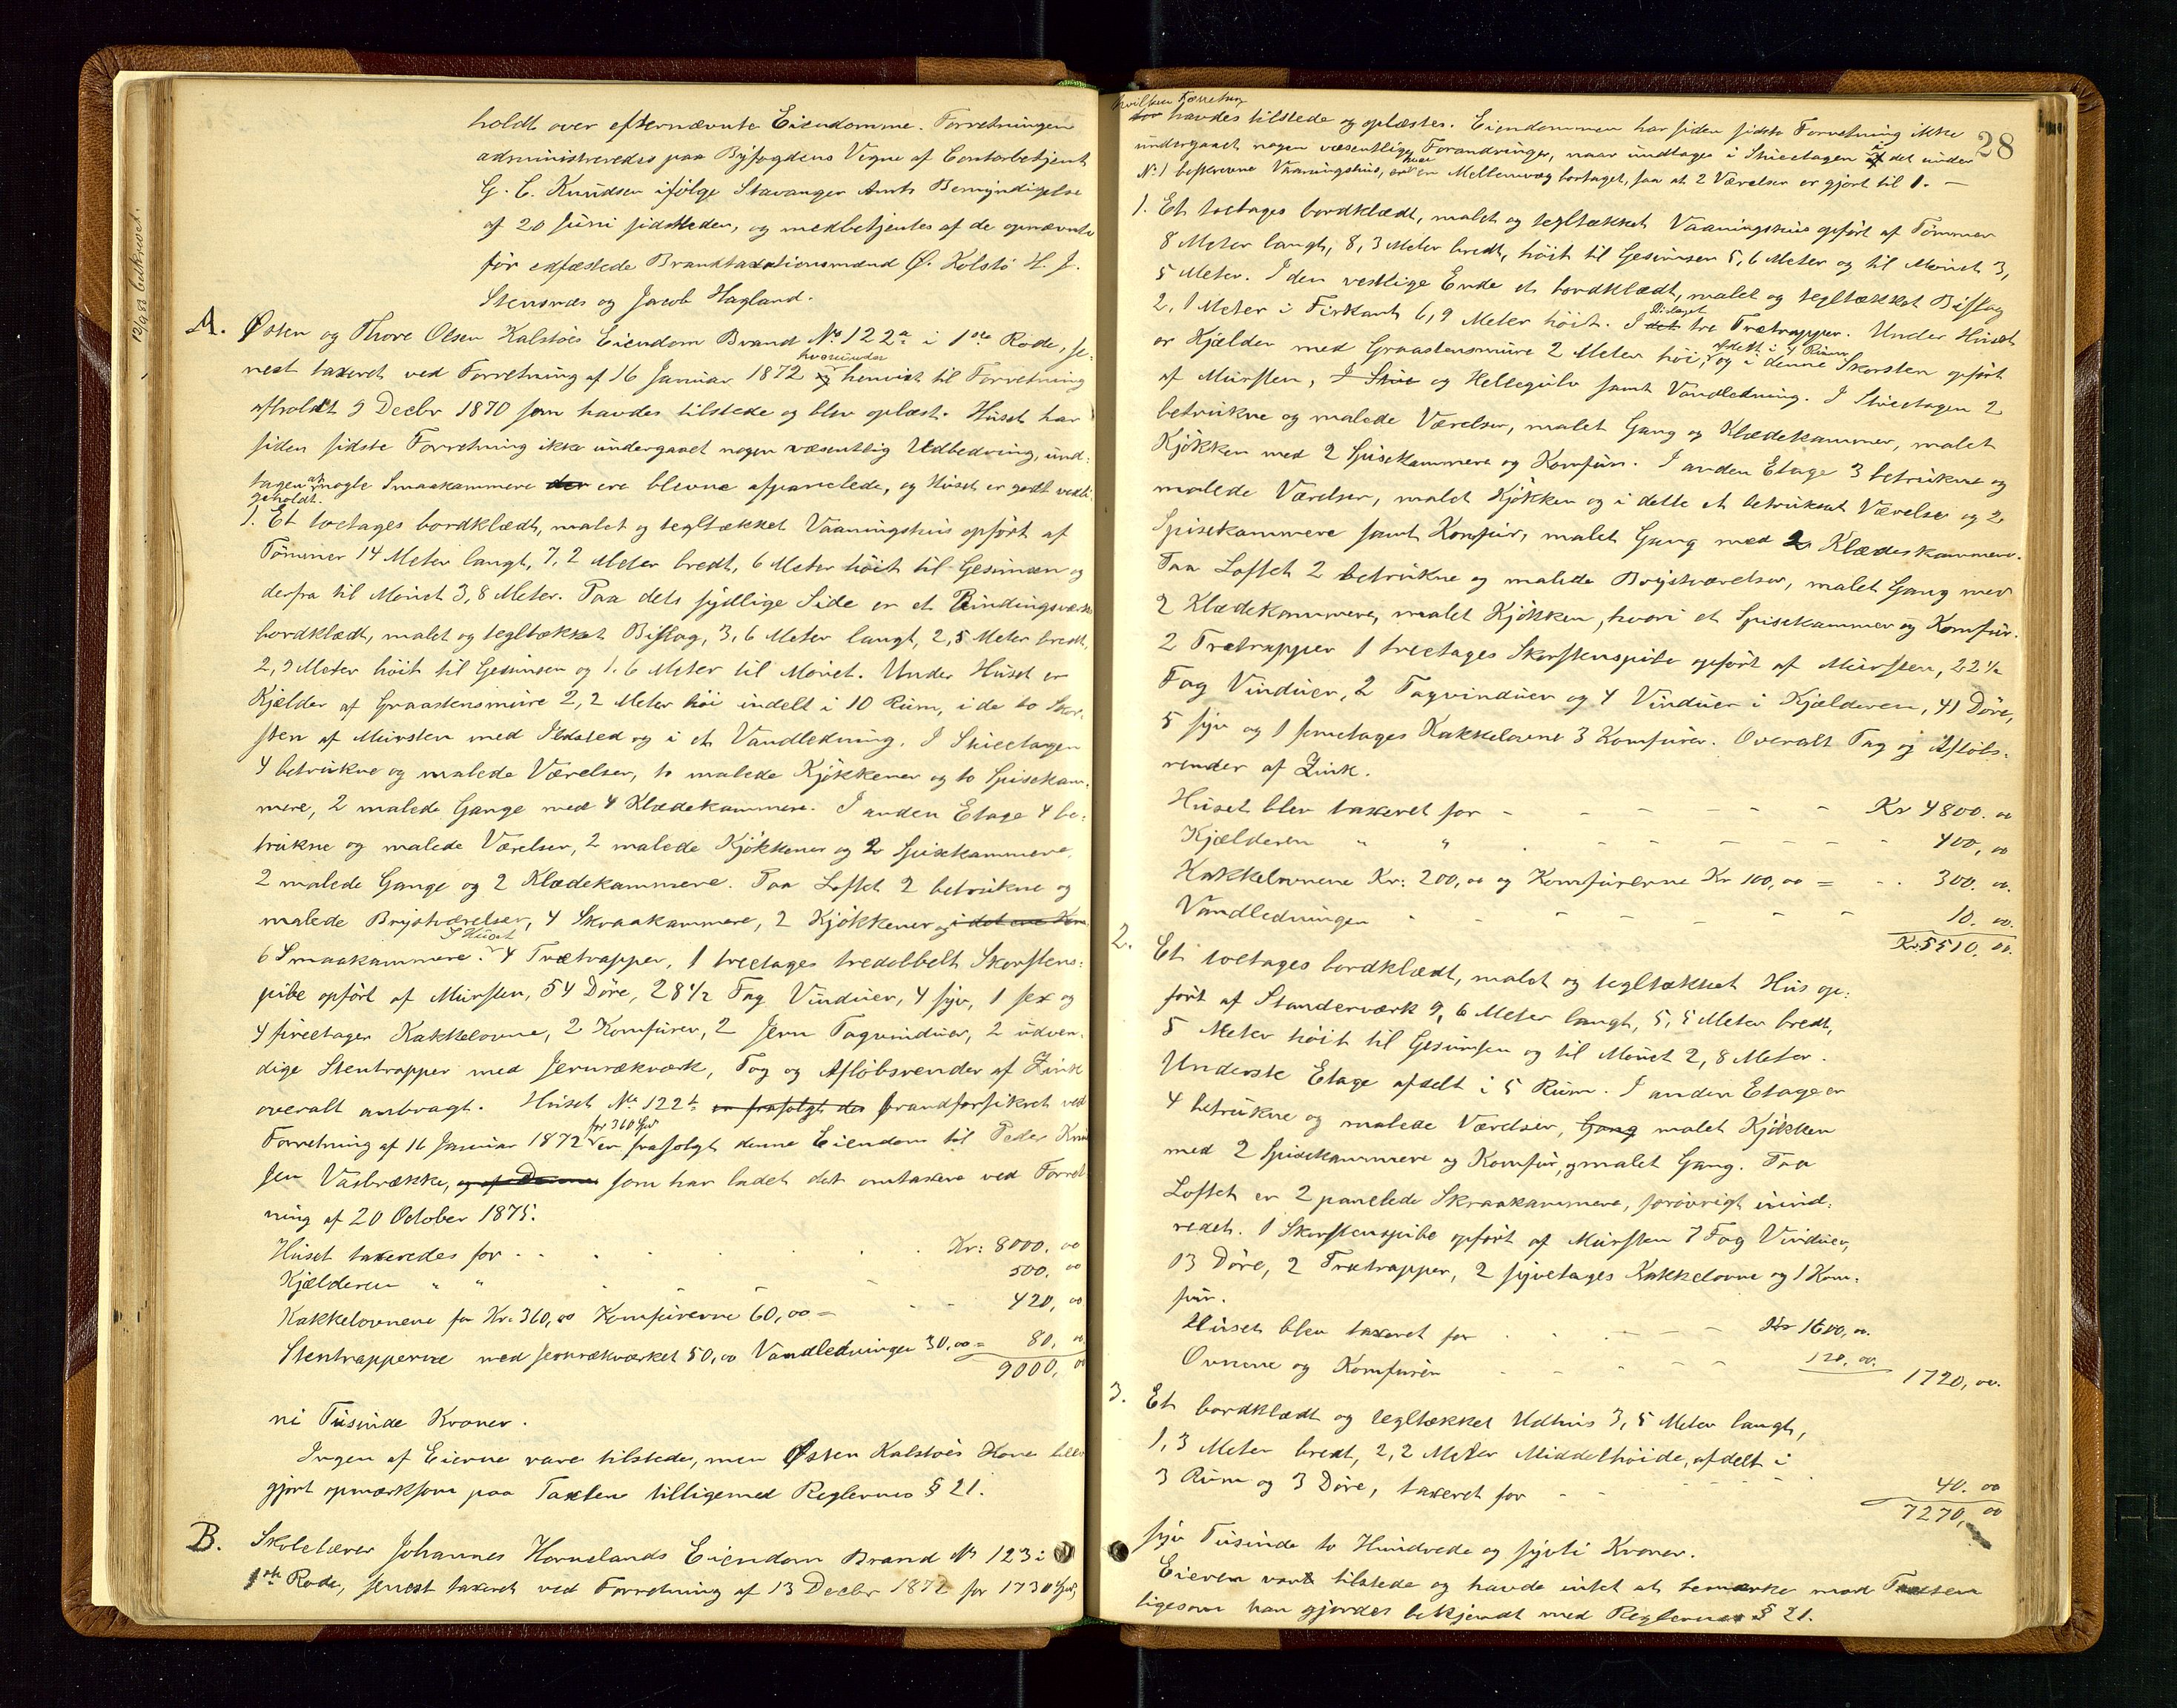 12/9 83 bekreftet.
holdt over efternævnte Eiendomme. Forretningen
administreredes paa Byfogdens Vegne af Contorbetjent
G. C. Knudsen ifölge Stavanger Amts Bemyndigelse
af 20 Juni sidstleden, og medbetjentes af de opnævnte
för edfæstede Branntaxationsmænd Ø. Kolstö H. J.
Stensnæs og Jacob Hagland.
A. Østen og Thore Olsen Kalstöes Eiendom Brand No 122a i 1ste Rode, se-
nest taxeret ved Forretning af 16 Januar 1872 hvorunder henvist til Forretning
afholdt 9 Decbr 1870 som havdes tilstede og blev oplæst. Huset har
siden sidste Forretning ikke undergaaet nogen væsentlig Udbedring, und-
tagen at nogle Smaakammere der ere blevne afpanelede, og Huset er godt vedli-
geholdt.
1. Et toetages bordklædt, malet og tegltækket Vaaningshus opfört af
Tömmer 14 Meter langt, 7,2 Meter bredt, 6 Meter höit til Gesimsen og
derfra til Mönet 3,8 Meter. Paa dets sydlige Side er et Bindingsværks
bordklædt, malet og tegltækket Bislag, 3,6 Meter langt, 2,5 Meter bredt,
2,9 Meter höit til Gesimsen og 1.6 Meter til Mönet. Under Huset er
Kjælder af Graastensmure 2,2 Meter höi indelt i 10 Rum, i de to Skor-
sten af Mursten med Ildsted og i et Vandledning. I Stueetagen
4 betrukne og malede Værelser, to malede Kjökkener og to Spisekam-
mere, 2 malede Gange med 4 Klædekammere. I anden Etage 4 be-
trukne og malede Værelser, 2 malede Kjökkener og 2 Spisekammere,
2 malede Gange og 2 Klædekammere. Paa Loftet 2 betrukne og
malede Brystværelser, 4 Skraakammere, 2 Kjökkener og i det ene Kom
6 Smaakammere. I Huset 4 Trætrapper, 1 treetages tredobbelt Skorstens-
pibe opfört af Mursten, 54 Döre, 28 1/2 Fag Vinduer, 4 syv, 1 sex og
4 fireetages Kakkelovne, 2 Komfurer, 2 Jern Tagvinduer, 2 udven-
dige Stentrapper med Jernrækværk, Tag og Aflöbsrender af Zink
overalt anbragt. Huset No 122b er frasolgt der brandforsikret ved
Forretning af 16 Januar 1872 for 360 Spd er frasolgt denne Eiendom til Peder Knud-
sen Vasbrække, som har ladet det omtaxere ved Forret-
ning af 20 October 1875.
Huset taxeredes for - - Kr: 8000. 00
Kjælderen " " 500. 00
Kakkelovnene for Kr. 360,00 Komfurerne 60,00 = 420, 00
Stentrapperne med Jernrækværket 50,00 Vandledninger 30,00 = 80. 00
9000, 00
ni Tusinde Kroner.
Ingen af Eierne vare tilstede, men Østen Kalstöes Kone blev
gjort opmærksom paa Taxten tilligemed Reglernes § 21.
B. Skolelærer Johannes Hornelands Eiendom Brand No 123 i
1ste Rode, senest taxeret ved Forretning af 13 Decbr 1872 for 1730 Spd,
28
hvilken Forretning
havdes tilstede og oplæstes. Eiendommen har siden sidste Forretning ikke
undergaaet nogen væsentlige Forandringer, naar undtages i Stueetagen i det under
No 1 beskrevne Vaaningshus, hvor en Mellemvæg borttaget, saa at 2 Værelser er gjort til 1. —
1. Et toetages bordklædt, malet og tegltækket Vaaningshus opfört af Tömmer
8 Meter langt, 8,3 Meter bredt, höit til Gesimsen 5,6 Meter og til Mönet 3,
5 Meter. I den vestlige Ende et bordklædt, malet og tegltækket Bislag
2,1 Meter i Firkant 6,9 Meter höit. I det Bislaget tre Trætrapper. Under Huset
er Kjælder med Graastensmure 2 Meter höi, afdelt i 4 Rum og i denne Skorsten opfört
af Mursten, I Stue og Hellegulv samt Vandledning. I Stueetagen 2
betrukne og malede Værelser, malet Gang og Klædekammer, malet
Kjökken med 2 Spisekammere og Komfur. I anden Etage 3 betrukne og
malede Værelser, malet Kjökken og i dette et betrukket Værelse og 2
Spisekammere samt Komfur, malet Gang med 2 Klædeskammere.
Paa Loftet 2 betrukne og malede Brystværelser, malet Gang med
2 Klædekammere, malet Kjökken, hvori et Spisekammer og Komfur.
2 Trætrapper 1 treetages Skorstenspibe opfört af Mursten, 22 1/2
Fag Vinduer, 2 Tagvinduer og 4 Vinduer i Kjælderen, 41 Döre,
5 syv og 1 femetages Kakkelovne 3 Komfurer. Overalt Tag og Aflöbs-
render af Zink.
Huset blev taxeret for - - - Kr 4800. 00
Kjælderen " " 400, 00
Kakkelovnene Kr: 200,00 og Komfurerne Kr 100,00 = 300. 00.
Vandledningen - - - 10. 00.
Kr. 5510, 00.
2. Et toetages bordklædt, malet og tegltækket Hus op-
fört af Standerværk 9,6 Meter langt, 5,5 Meter bredt,
5 Meter höit til Gesimsen og til Mönet 2,8 Meter.
Underste Etage afdelt i 5 Rum. I anden Etage er
4 betrukne og malede Værelser, Gang malet Kjökken
med 2 Spisekammere og Komfur, og malet Gang. Paa
Loftet er 2 panelede Skraakammere, forövrigt uind-
redet. 1 Skorstenspibe opfört af Mursten 7 Fag Vinduer,
13 Döre, 2 Trætrapper, 2 syvetages Kakkelovne og 1 Kom-
fur.
Huset blev taxeret for - - - Kr 1600, 00.
Ovnene og Komfuren - - 120. 00.
1720, 00.
3. Et bordklædt og tegltækket Udhus 3,5 Meter langt,
1,3 Meter bredt, 2,2 Meter Middelhöide, afdelt i
3 Rum og 3 Döre, taxeret for - - 40. 00
7270, 00
syv Tusinde to Hundrede og sytti Kroner.
Eieren vare tilstede og havde intet at bemærke mod Taxten
ligesom han gjordes bekjendt med Reglernes § 21.